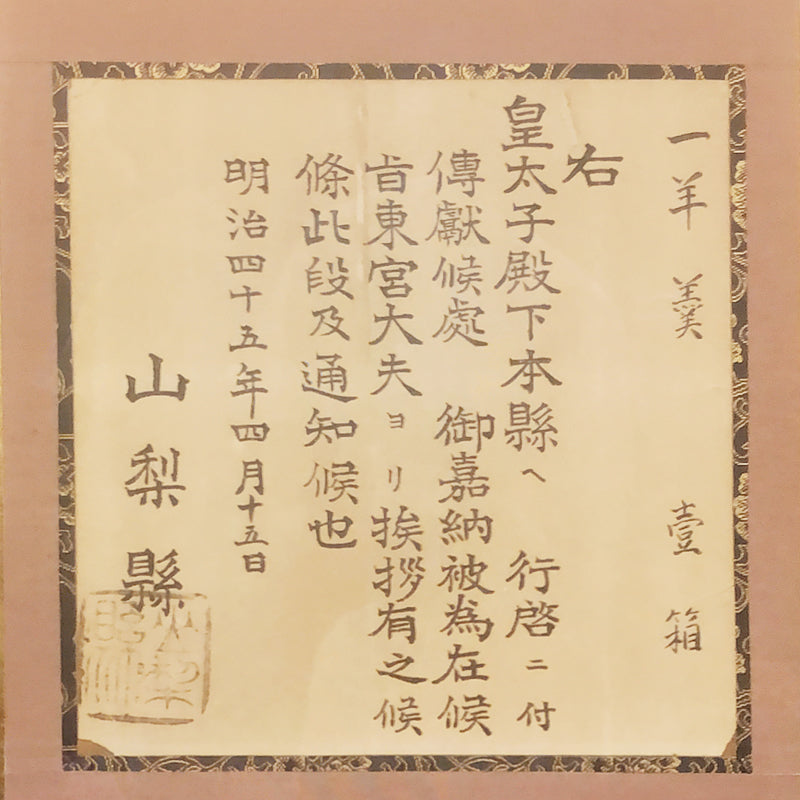 一羊羹 壹箱
右
皇太子殿下本縣ヘ 行啓ニ付
傳獻候處 御嘉納被為在候
旨東宮大夫ヨリ挨拶有之候
條此段及通知候也
明治四十五年四月十五日
山梨縣